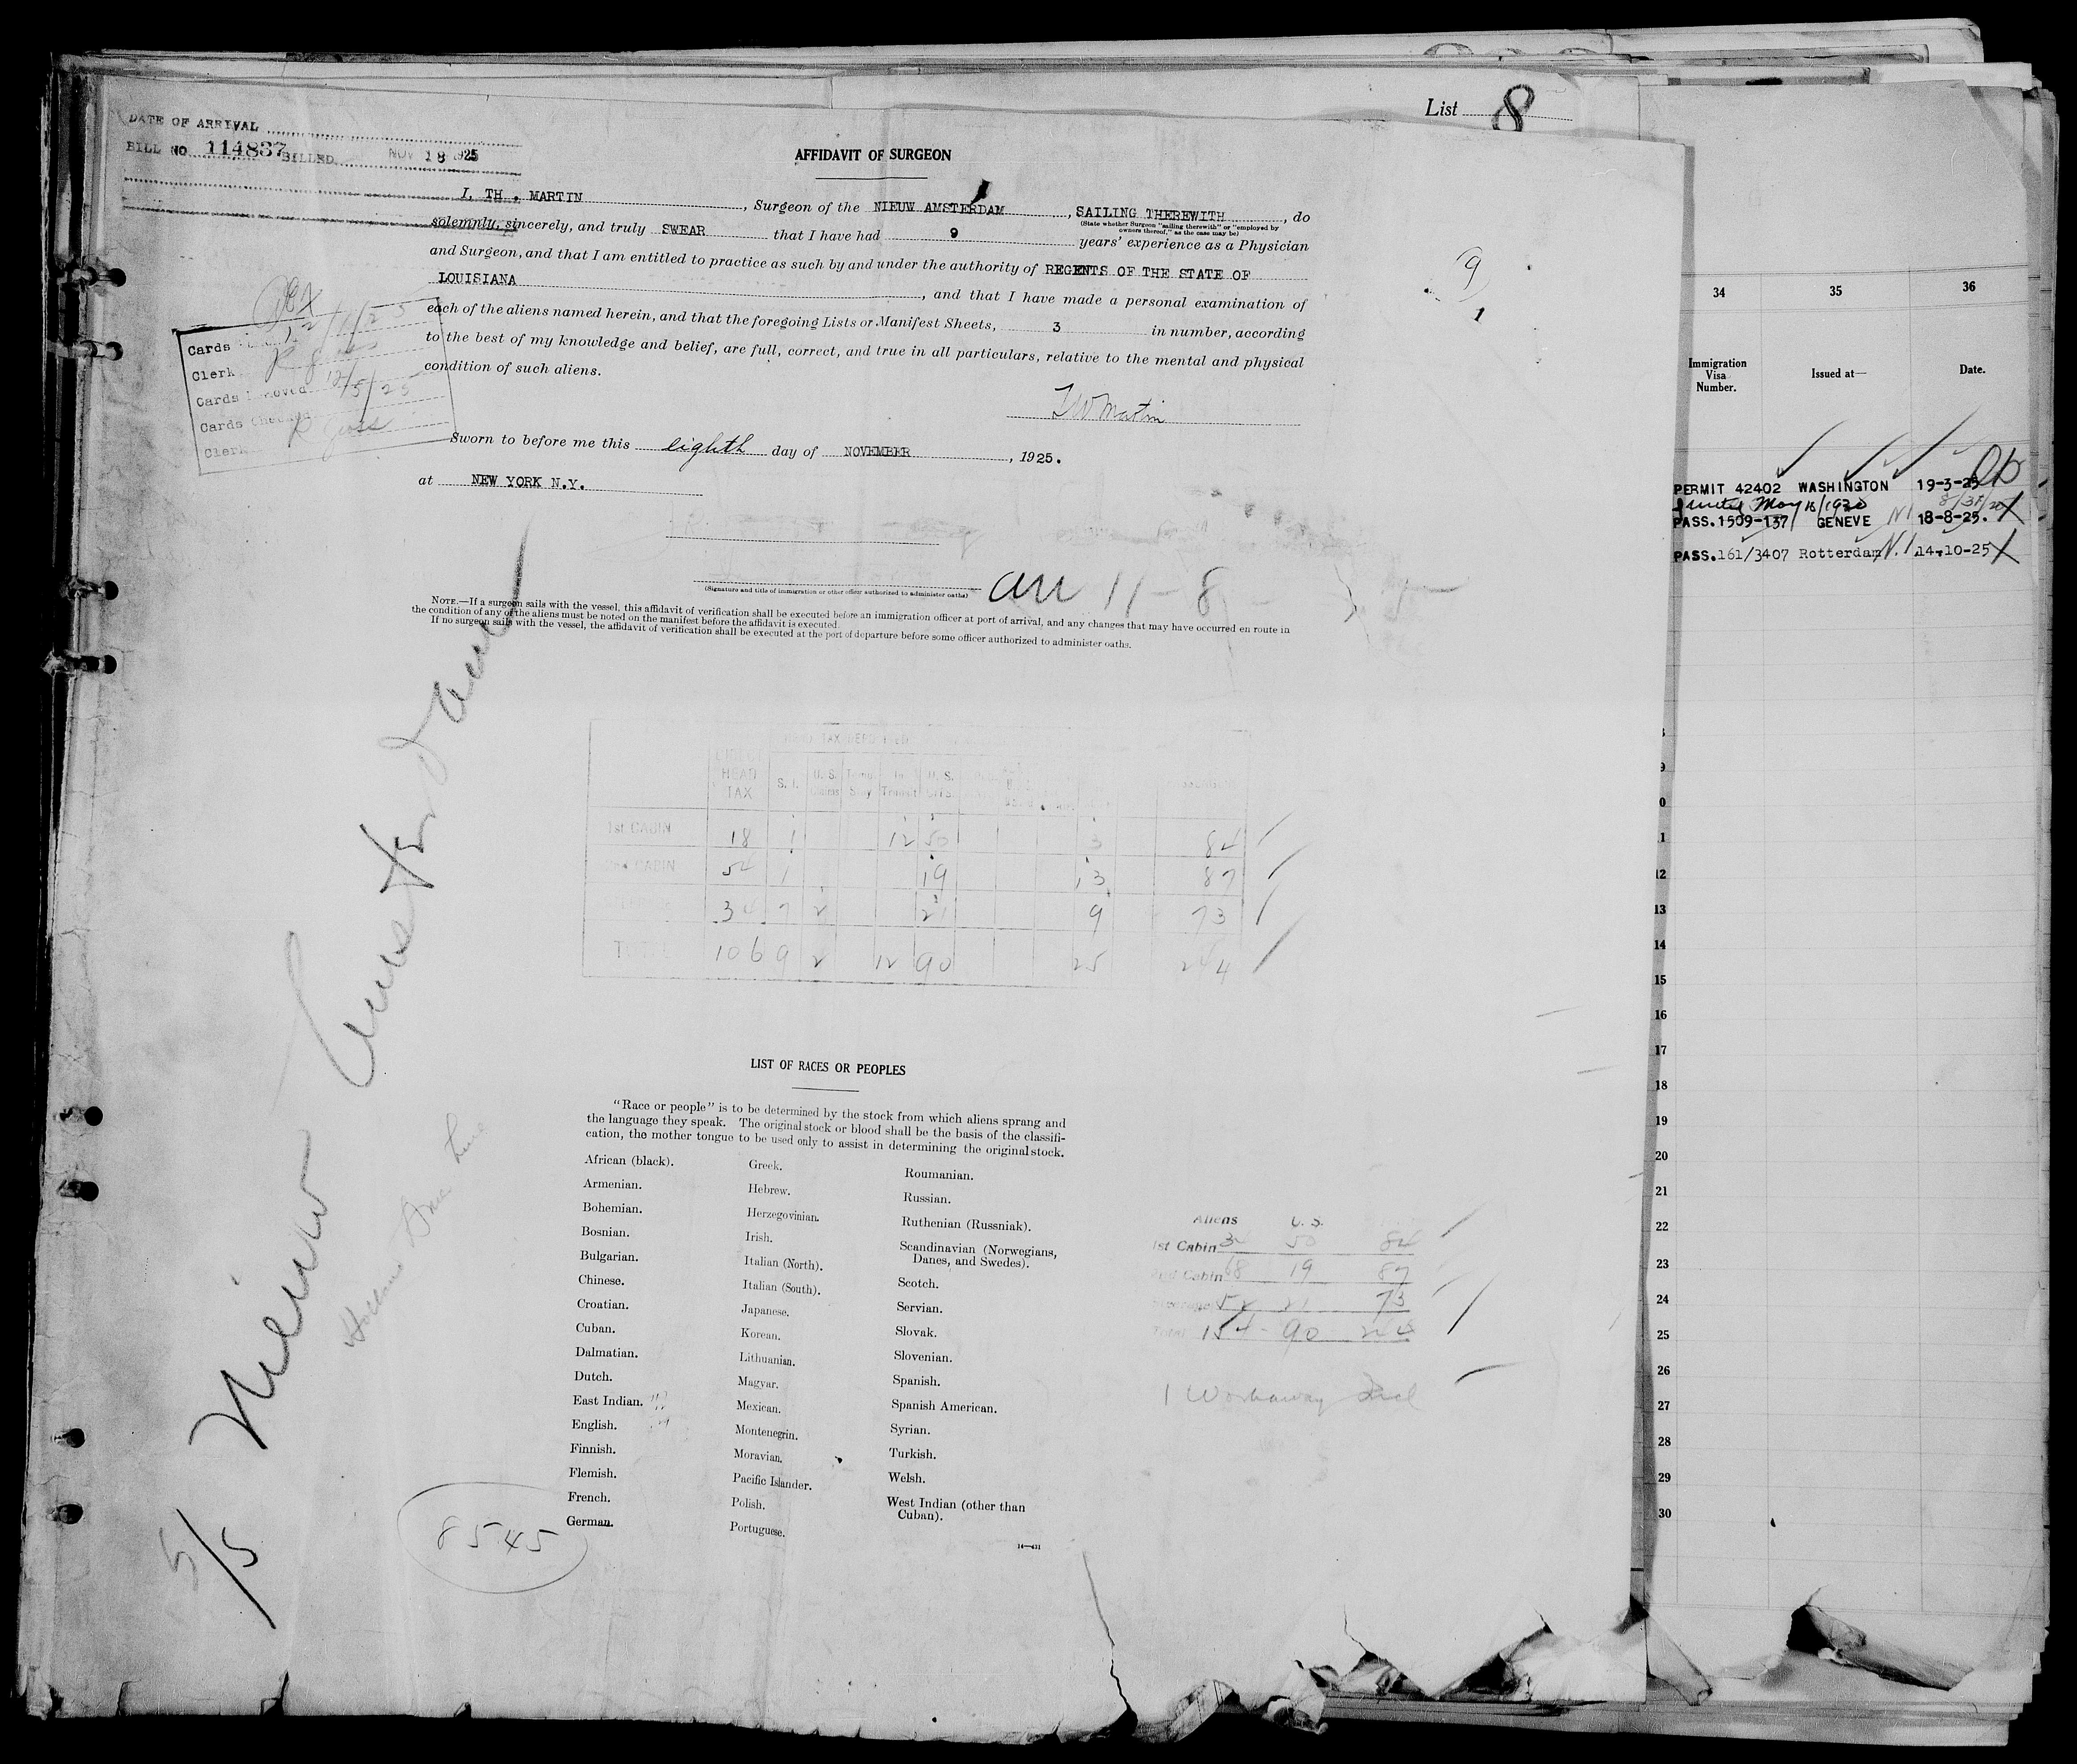 List 8
DATE OF ARRIVAL
BILL NO 114837 BILLED NOV 18 1925
AFFIDAVIT OF SURGEON
I, TH. MARTIN, Surgeon of the NIEUW AMSTERDAM, SAILING THEREWITH, do
(State whether Surgeon "sailing therewith" or "employed by
owners thereof," as the case may be)
solemnly, sincerely, and truly SWEAR that I have had 9 years' experience as a Physician
and Surgeon, and that I am entitled to practice as such by and under the authority of REGENTS OF THE STATE OF
LOUISIANA, and that I have made a personal examination of
each of the aliens named herein, and that the foregoing Lists or Manifest Sheets, 3 in number, according
to the best of my knowledge and belief, are full, correct, and true in all particulars, relative to the mental and physical
condition of such aliens.
Martin
Sworn to before me this eighth day of NOVEMBER, 1925.
at NEW YORK N.Y.
9
1
Cards
Clerk
Cards 12/5/25
Cards Checked
Clerk R Goss
(Signature and title of immigration or other officer authorized to administer oaths)
arr 11-8
NOTE.—If a surgeon sails with the vessel, this affidavit of verification shall be executed before an immigration officer at port of arrival, and any changes that may have occurred en route in
the condition of any of the aliens must be noted on the manifest before the affidavit is executed.
If no surgeon sails with the vessel, the affidavit of verification shall be executed at the port of departure before some officer authorized to administer oaths.
HEAD TAX S. I. U. S. Temp. Stay In Transit U. S.
1st CABIN 18 1 12 50 3 84
CABIN 54 1 19 13 87
34 7 2 21 9 73
106 9 2 12 90 25 244
Nieuw Amsterdam
Holland Amer Line
5/5
8545
LIST OF RACES OR PEOPLES
"Race or people" is to be determined by the stock from which aliens sprang and
the language they speak. The original stock or blood shall be the basis of the classifi-
cation, the mother tongue to be used only to assist in determining the original stock.
African (black).
Armenian.
Bohemian.
Bosnian.
Bulgarian.
Chinese.
Croatian.
Cuban.
Dalmatian.
Dutch.
East Indian.
English.
Finnish.
Flemish.
French.
German.
Greek.
Hebrew.
Herzegovinian.
Irish.
Italian (North).
Italian (South).
Japanese.
Korean.
Lithuanian.
Magyar.
Mexican.
Montenegrin.
Moravian.
Pacific Islander.
Polish.
Portuguese.
Roumanian.
Russian.
Ruthenian (Russniak).
Scandinavian (Norwegians,
Danes, and Swedes).
Scotch.
Servian.
Slovak.
Slovenian.
Spanish.
Spanish American.
Syrian.
Turkish.
Welsh.
West Indian (other than
Cuban).
Aliens U. S.
1st Cabin 34 50 84
2nd Cabin 68 19 87
Steerage 52 21 73
Total 154 90 244
1 Workaway Incl
34 35 36
Immigration
Visa
Number.
Issued at—
Date.
PERMIT 42402 WASHINGTON 19-3-25
May 18/1920
PASS. 1509-137 GENEVE 18-8-25.
PASS. 161/3407 Rotterdam 14-10-25
9
0
1
12
13
14
15
16
17
18
19
20
21
22
23
24
25
26
27
28
29
30